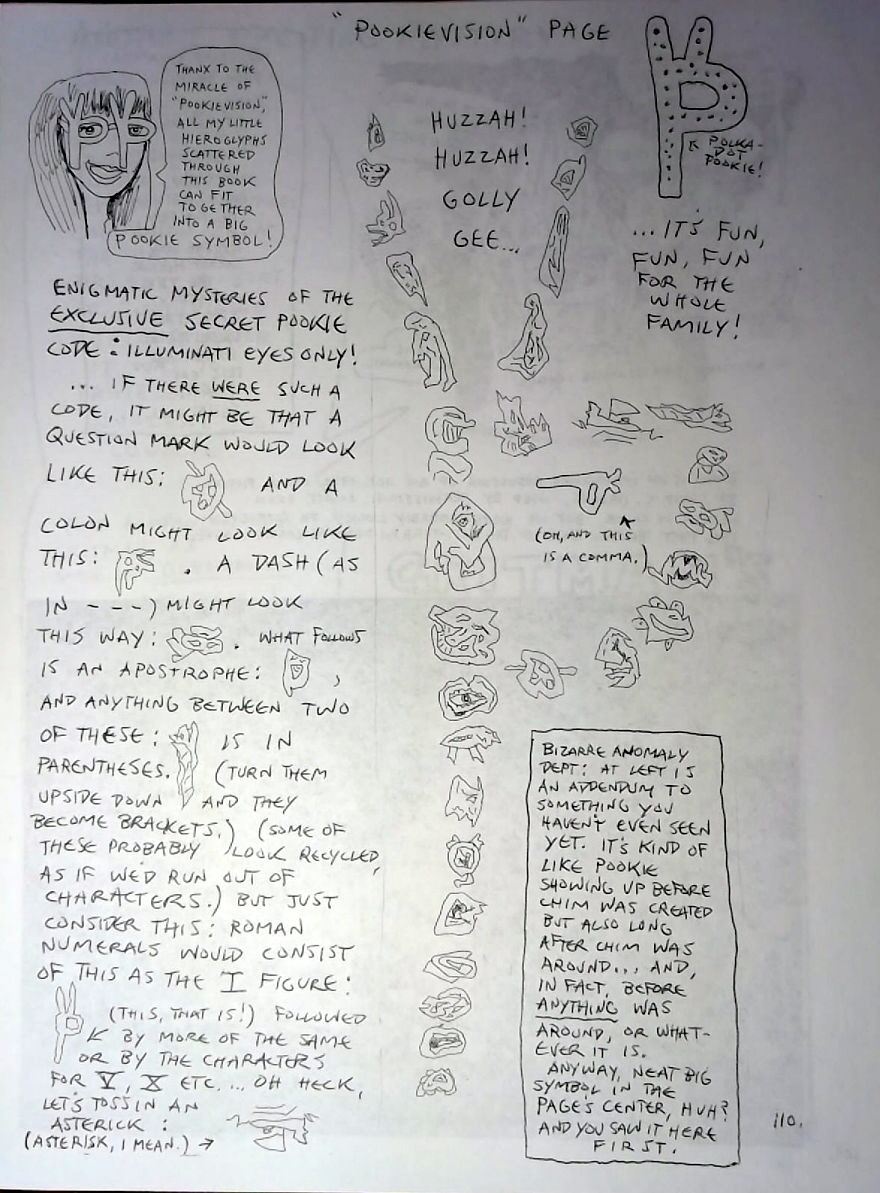 "POOKIEVISION" PAGE
THANX TO THE
MIRACLE OF
"POOKIEVISION,"
ALL MY LITTLE
HIEROGLYPHS
SCATTERED
THROUGH
THIS BOOK
CAN FIT
TOGETHER
INTO A BIG
POOKIE SYMBOL!
HUZZAH!
HUZZAH!
GOLLY
GEE...
POLKA-
DOT
POOKIE!
...IT'S FUN,
FUN, FUN
FOR THE
WHOLE
FAMILY!
ENIGMATIC MYSTERIES OF THE
EXCLUSIVE SECRET POOKIE
CODE: ILLUMINATI EYES ONLY!
... IF THERE WERE SUCH A
CODE, IT MIGHT BE THAT A
QUESTION MARK WOULD LOOK
LIKE THIS: AND A
COLON MIGHT LOOK LIKE
THIS: . A DASH (AS
IN ---) MIGHT LOOK
THIS WAY: . WHAT FOLLOWS
IS AN APOSTROPHE: ,
AND ANYTHING BETWEEN TWO
OF THESE: IS IN
PARENTHESES. (TURN THEM
UPSIDE DOWN AND THEY
BECOME BRACKETS.) (SOME OF
THESE PROBABLY LOOK RECYCLED,
AS IF WE'D RUN OUT OF
CHARACTERS.) BUT JUST
CONSIDER THIS: ROMAN
NUMERALS WOULD CONSIST
OF THIS AS THE I FIGURE:
(THIS, THAT IS!) FOLLOWED
BY MORE OF THE SAME
OR BY THE CHARACTERS
FOR V, X ETC. ... OH HECK,
LET'S TOSS IN AN
ASTERICK:
(ASTERISK, I MEAN.) →
(OH, AND THIS
IS A COMMA.)
BIZARRE ANOMALY
DEPT: AT LEFT IS
AN ADDENDUM TO
SOMETHING YOU
HAVEN'T EVEN SEEN
YET. IT'S KIND OF
LIKE POOKIE
SHOWING UP BEFORE
CHIM WAS CREATED
BUT ALSO LONG
AFTER CHIM WAS
AROUND... AND,
IN FACT, BEFORE
ANYTHING WAS
AROUND, OR WHAT-
EVER IT IS.
ANYWAY, NEAT BIG
SYMBOL IN THE
PAGE'S CENTER, HUH?
AND YOU SAW IT HERE
FIRST.
110.